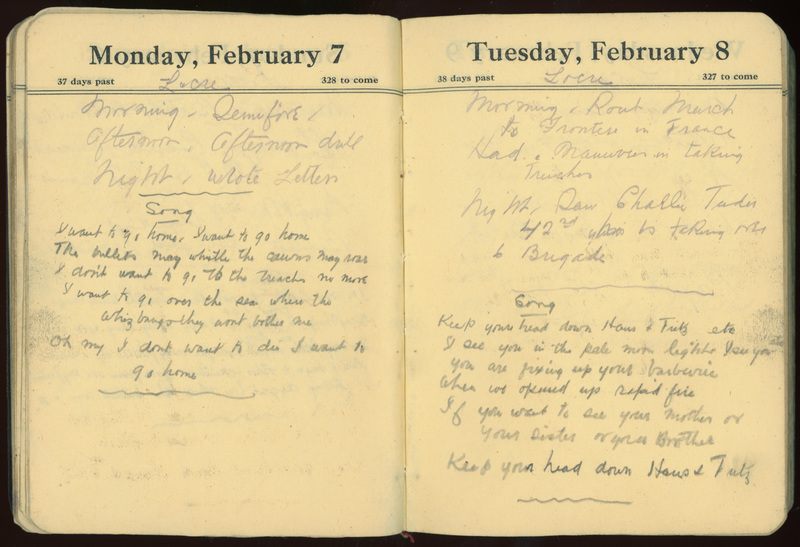 Monday, February 7
37 days past Locre 328 to come
Morning, Semifore,
Afternoon, Afternoon dull
Night, wrote Letters
Song
I want to go home, I want to go home
The bullets may whistle the cannons may roar
I don't want to go to the trenches no more
I want to go over the sea where the
whizbangs they wont bother me
Oh my I dont want to die I want to
go home
Tuesday, February 8
38 days past Locre 327 to come
Morning, Rout March
to Frontier in France
Had, Maneuver in taking
Trenches
Night, Saw Challie
42nd who is taking
6 Brigade
Song
Keep your head down Hans & Fritz etc
I see you in the pale moon light I see you etc
you are fixing up your barbwire
When we opened up rapid fire
If you want to see your mother or
your sister or your Brother
Keep your head down Hans & Fritz